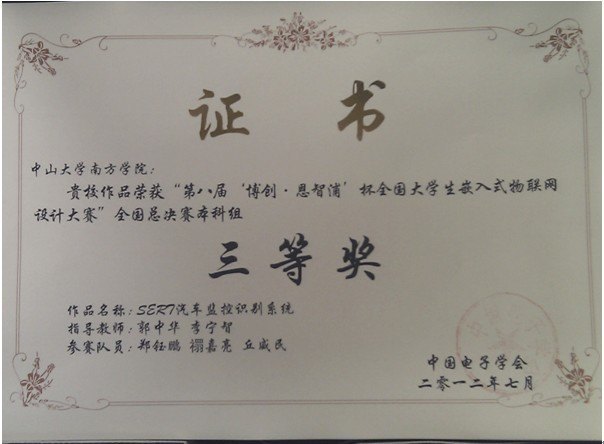 证 书
中山大学南方学院：
贵校作品荣获“第八届‘博创·恩智浦’杯全国大学生嵌入式物联网
设计大赛”全国总决赛本科组
三等奖
作品名称：SERT汽车监控识别系统
指导教师：郭中华 李宁智
参赛队员：郑钰鹏 禤嘉亮 丘威民
中国电子学会
二零一二年七月